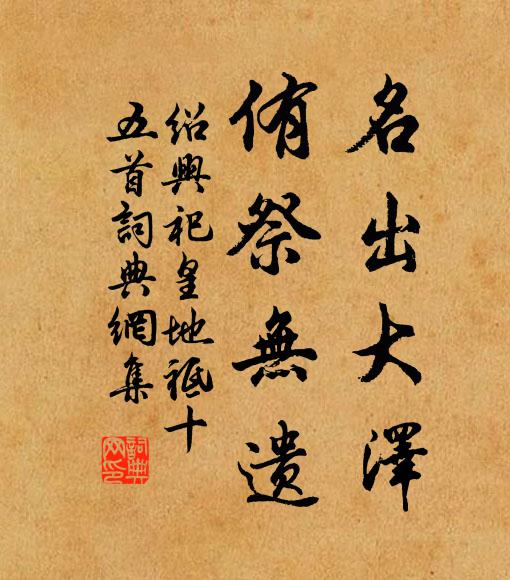 名出大澤
侑祭無遗
绍興祀皇地祇十
五首詞典網集